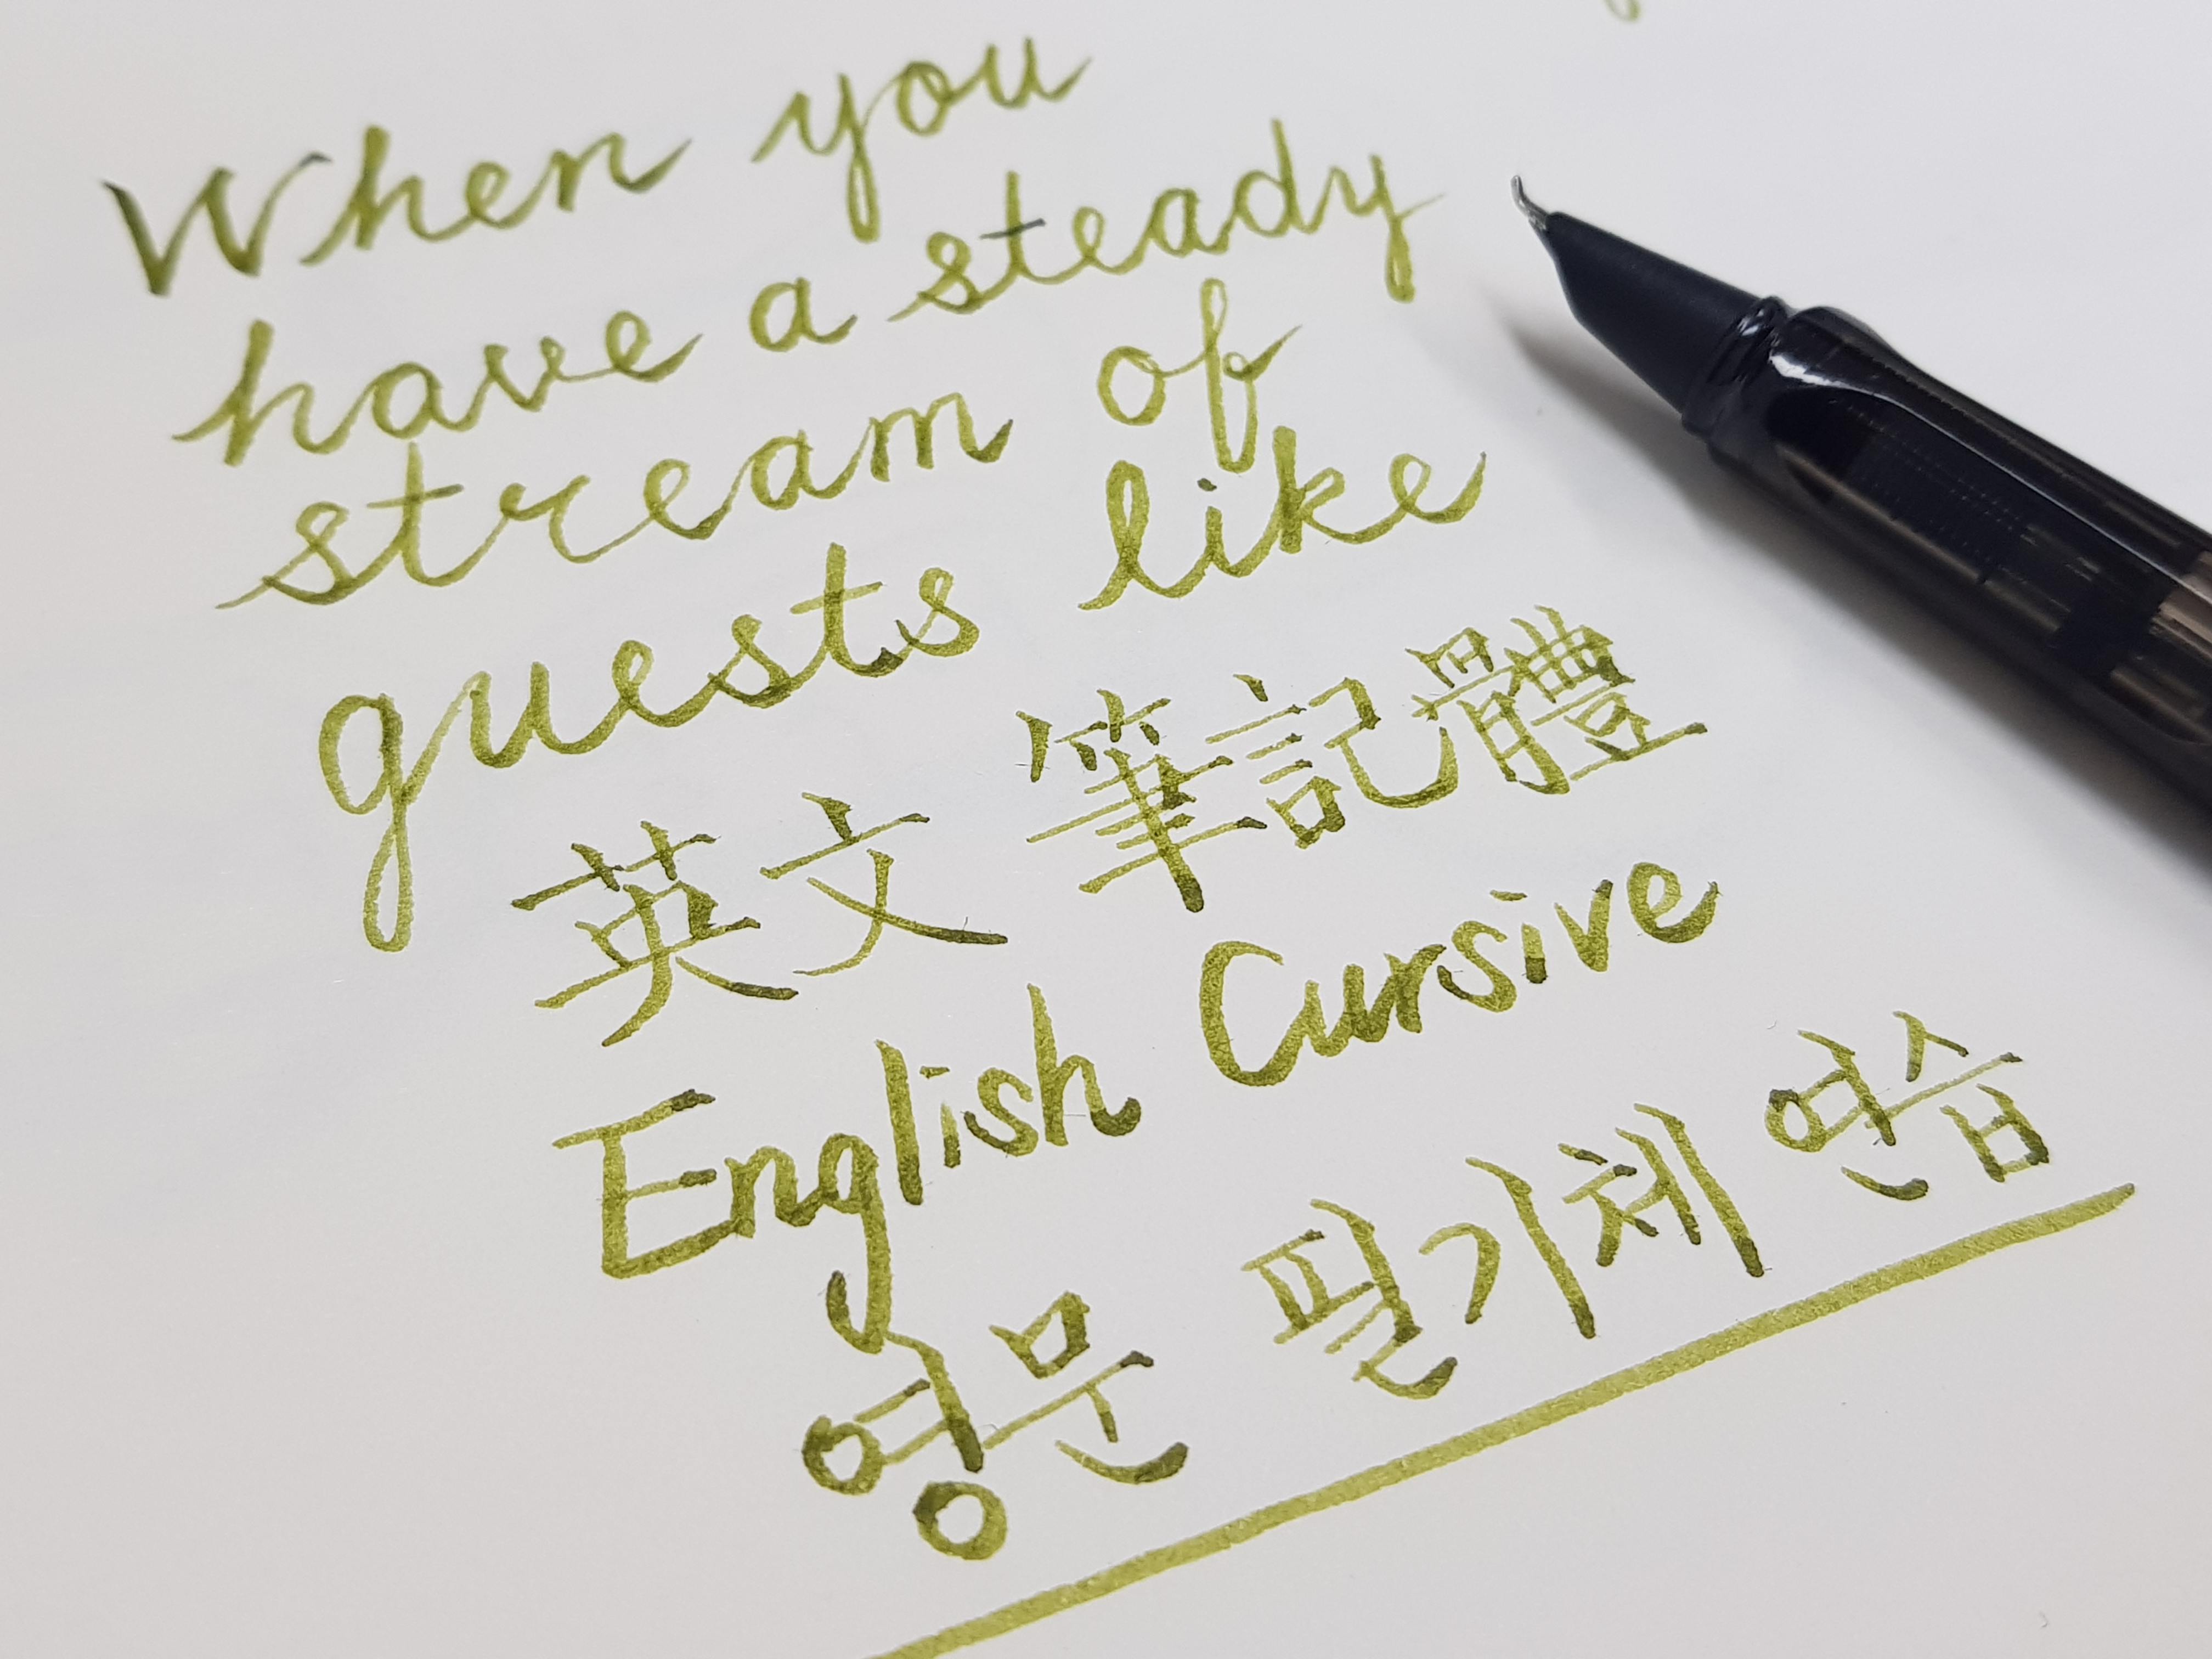 When you
have a steady
stream of
guests like
英文 筆記體
English Cursive
영문 필기체 연습